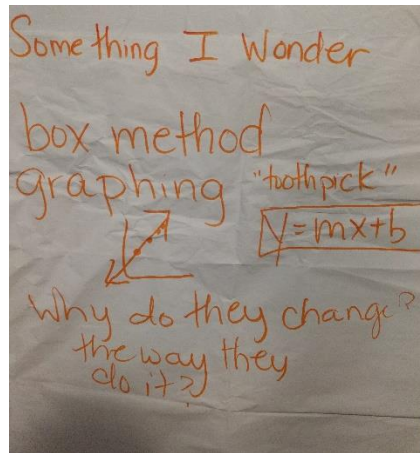 Something I Wonder
box method
graphing "toothpick"
y=mx+b
Why do they change?
the way they
do it?